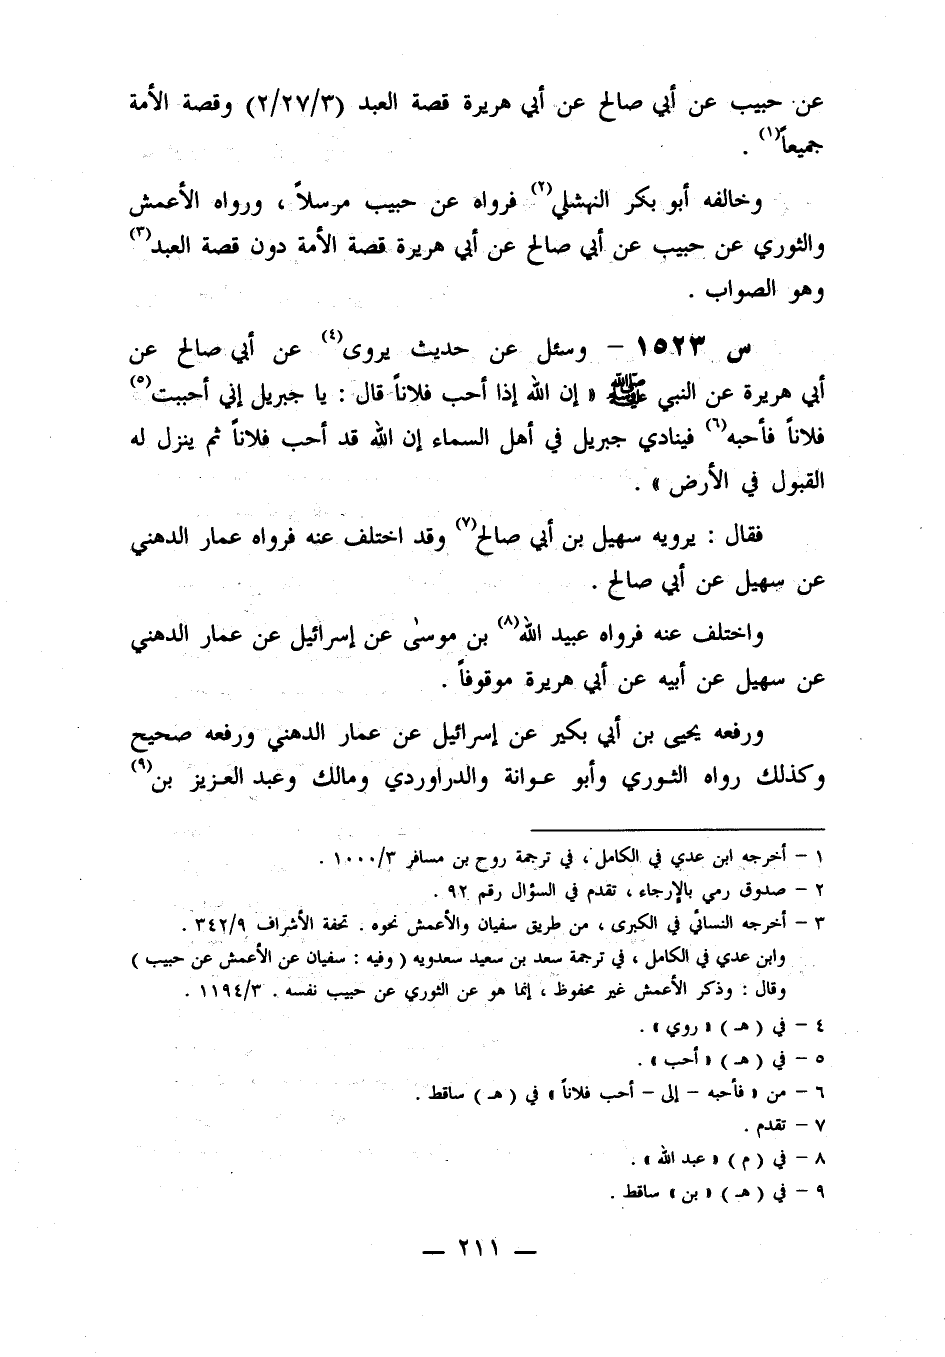 عن حبيب عن أبي صالح عن أبي هريرة قصة العبد (٢/٢٧/٣) وقصة الأمة
جميعاً(١) .
وخالفه أبو بكر النهشلي(٢) فرواه عن حبيب مرسلاً ، ورواه الأعمش
والثوري عن حبيب عن أبي صالح عن أبي هريرة قصة الأمة دون قصة العبد(٣)
وهو الصواب .
س ١٥٢٣ – وسئل عن حديث يروى(٤) عن أبي صالح عن
أبي هريرة عن النبي ﷺ « إن الله إذا أحب فلاناً قال : يا جبريل إني أحببت(٥)
فلاناً فأحبه(٦) فينادي جبريل في أهل السماء إن الله قد أحب فلاناً ثم ينزل له
القبول في الأرض » .
فقال : يرويه سهيل بن أبي صالح(٧) وقد اختلف عنه فرواه عمار الدهني
عن سهيل عن أبي صالح .
واختلف عنه فرواه عبيد الله(٨) بن موسىٰ عن إسرائيل عن عمار الدهني
عن سهيل عن أبيه عن أبي هريرة موقوفاً .
ورفعه يحيى بن أبي بكير عن إسرائيل عن عمار الدهني ورفعه صحيح
وكذلك رواه الثوري وأبو عوانة والدراوردي ومالك وعبد العزيز بن(٩)
١ – أخرجه ابن عدي في الكامل ، في ترجمة روح بن مسافر ١٠٠٠/٣ .
٢ – صدوق رمي بالإرجاء ، تقدم في السؤال رقم ٩٢ .
٣ – أخرجه النسائي في الكبرى ، من طريق سفيان والأعمش نحوه . تحفة الأشراف ٣٤٢/٩ .
وابن عدي في الكامل ، في ترجمة سعد بن سعيد سعدويه ( وفيه : سفيان عن الأعمش عن حبيب )
وقال : وذكر الأعمش غير محفوظ ، إنما هو عن الثوري عن حبيب نفسه . ١١٩٤/٣ .
٤ – في ( هـ ) « روي » .
٥ – في ( هـ ) « أحب » .
٦ – من « فأحبه – إلى – أحب فلاناً » في ( هـ ) ساقط .
٧ – تقدم .
٨ – في ( م ) « عبد الله » .
٩ – في ( هـ ) « بن » ساقط .
— ٢١١ —